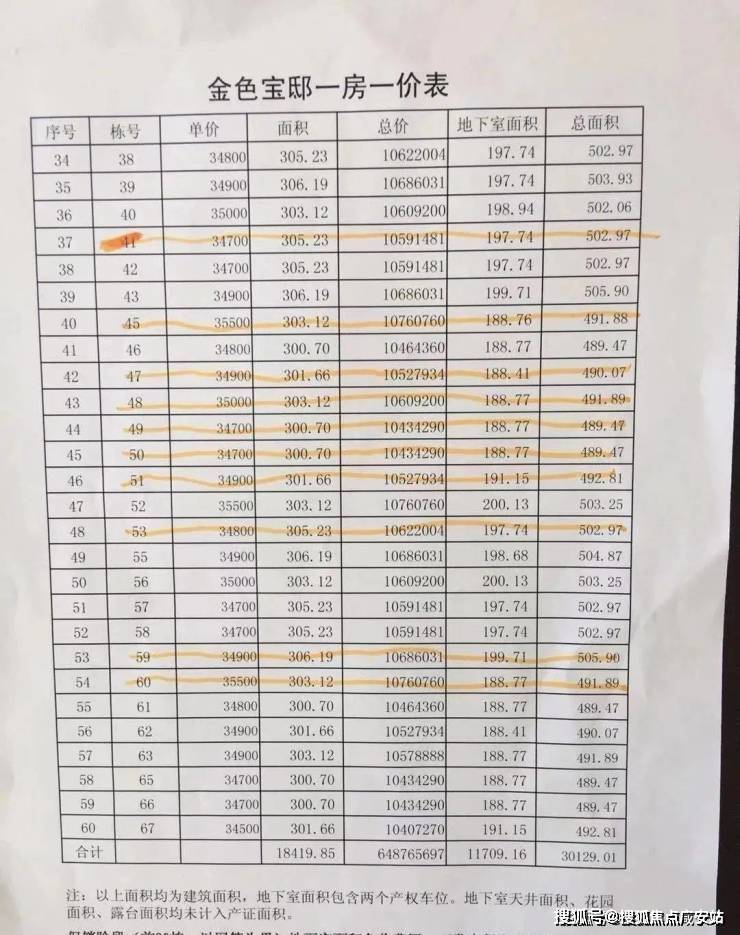 金色宝邸一房一价表
序号 栋号 单价 面积 总价 地下室面积 总面积
34 38 34800 305.23 10622004 197.74 502.97
35 39 34900 306.19 10686031 197.74 503.93
36 40 35000 303.12 10609200 198.94 502.06
37 41 34700 305.23 10591481 197.74 502.97
38 42 34700 305.23 10591481 197.74 502.97
39 43 34900 306.19 10686031 199.71 505.90
40 45 35500 303.12 10760760 188.76 491.88
41 46 34800 300.70 10464360 188.77 489.47
42 47 34900 301.66 10527934 188.41 490.07
43 48 35000 303.12 10609200 188.77 491.89
44 49 34700 300.70 10434290 188.77 489.47
45 50 34700 300.70 10434290 188.77 489.47
46 51 34900 301.66 10527934 191.15 492.81
47 52 35500 303.12 10760760 200.13 503.25
48 53 34800 305.23 10622004 197.74 502.97
49 55 34900 306.19 10686031 198.68 504.87
50 56 35000 303.12 10609200 200.13 503.25
51 57 34700 305.23 10591481 197.74 502.97
52 58 34700 305.23 10591481 197.74 502.97
53 59 34900 306.19 10686031 199.71 505.90
54 60 35500 303.12 10760760 188.77 491.89
55 61 34800 300.70 10464360 188.77 489.47
56 62 34900 301.66 10527934 188.41 490.07
57 63 34900 303.12 10578888 188.77 491.89
58 65 34700 300.70 10434290 188.77 489.47
59 66 34700 300.70 10434290 188.77 489.47
60 67 34500 301.66 10407270 191.15 492.81
合计 18419.85 648765697 11709.16 30129.01
注：以上面积均为建筑面积，地下室面积包含两个产权车位。地下室天井面积、花园
面积、露台面积均未计入产证面积。
搜狐号@搜狐焦点广安站